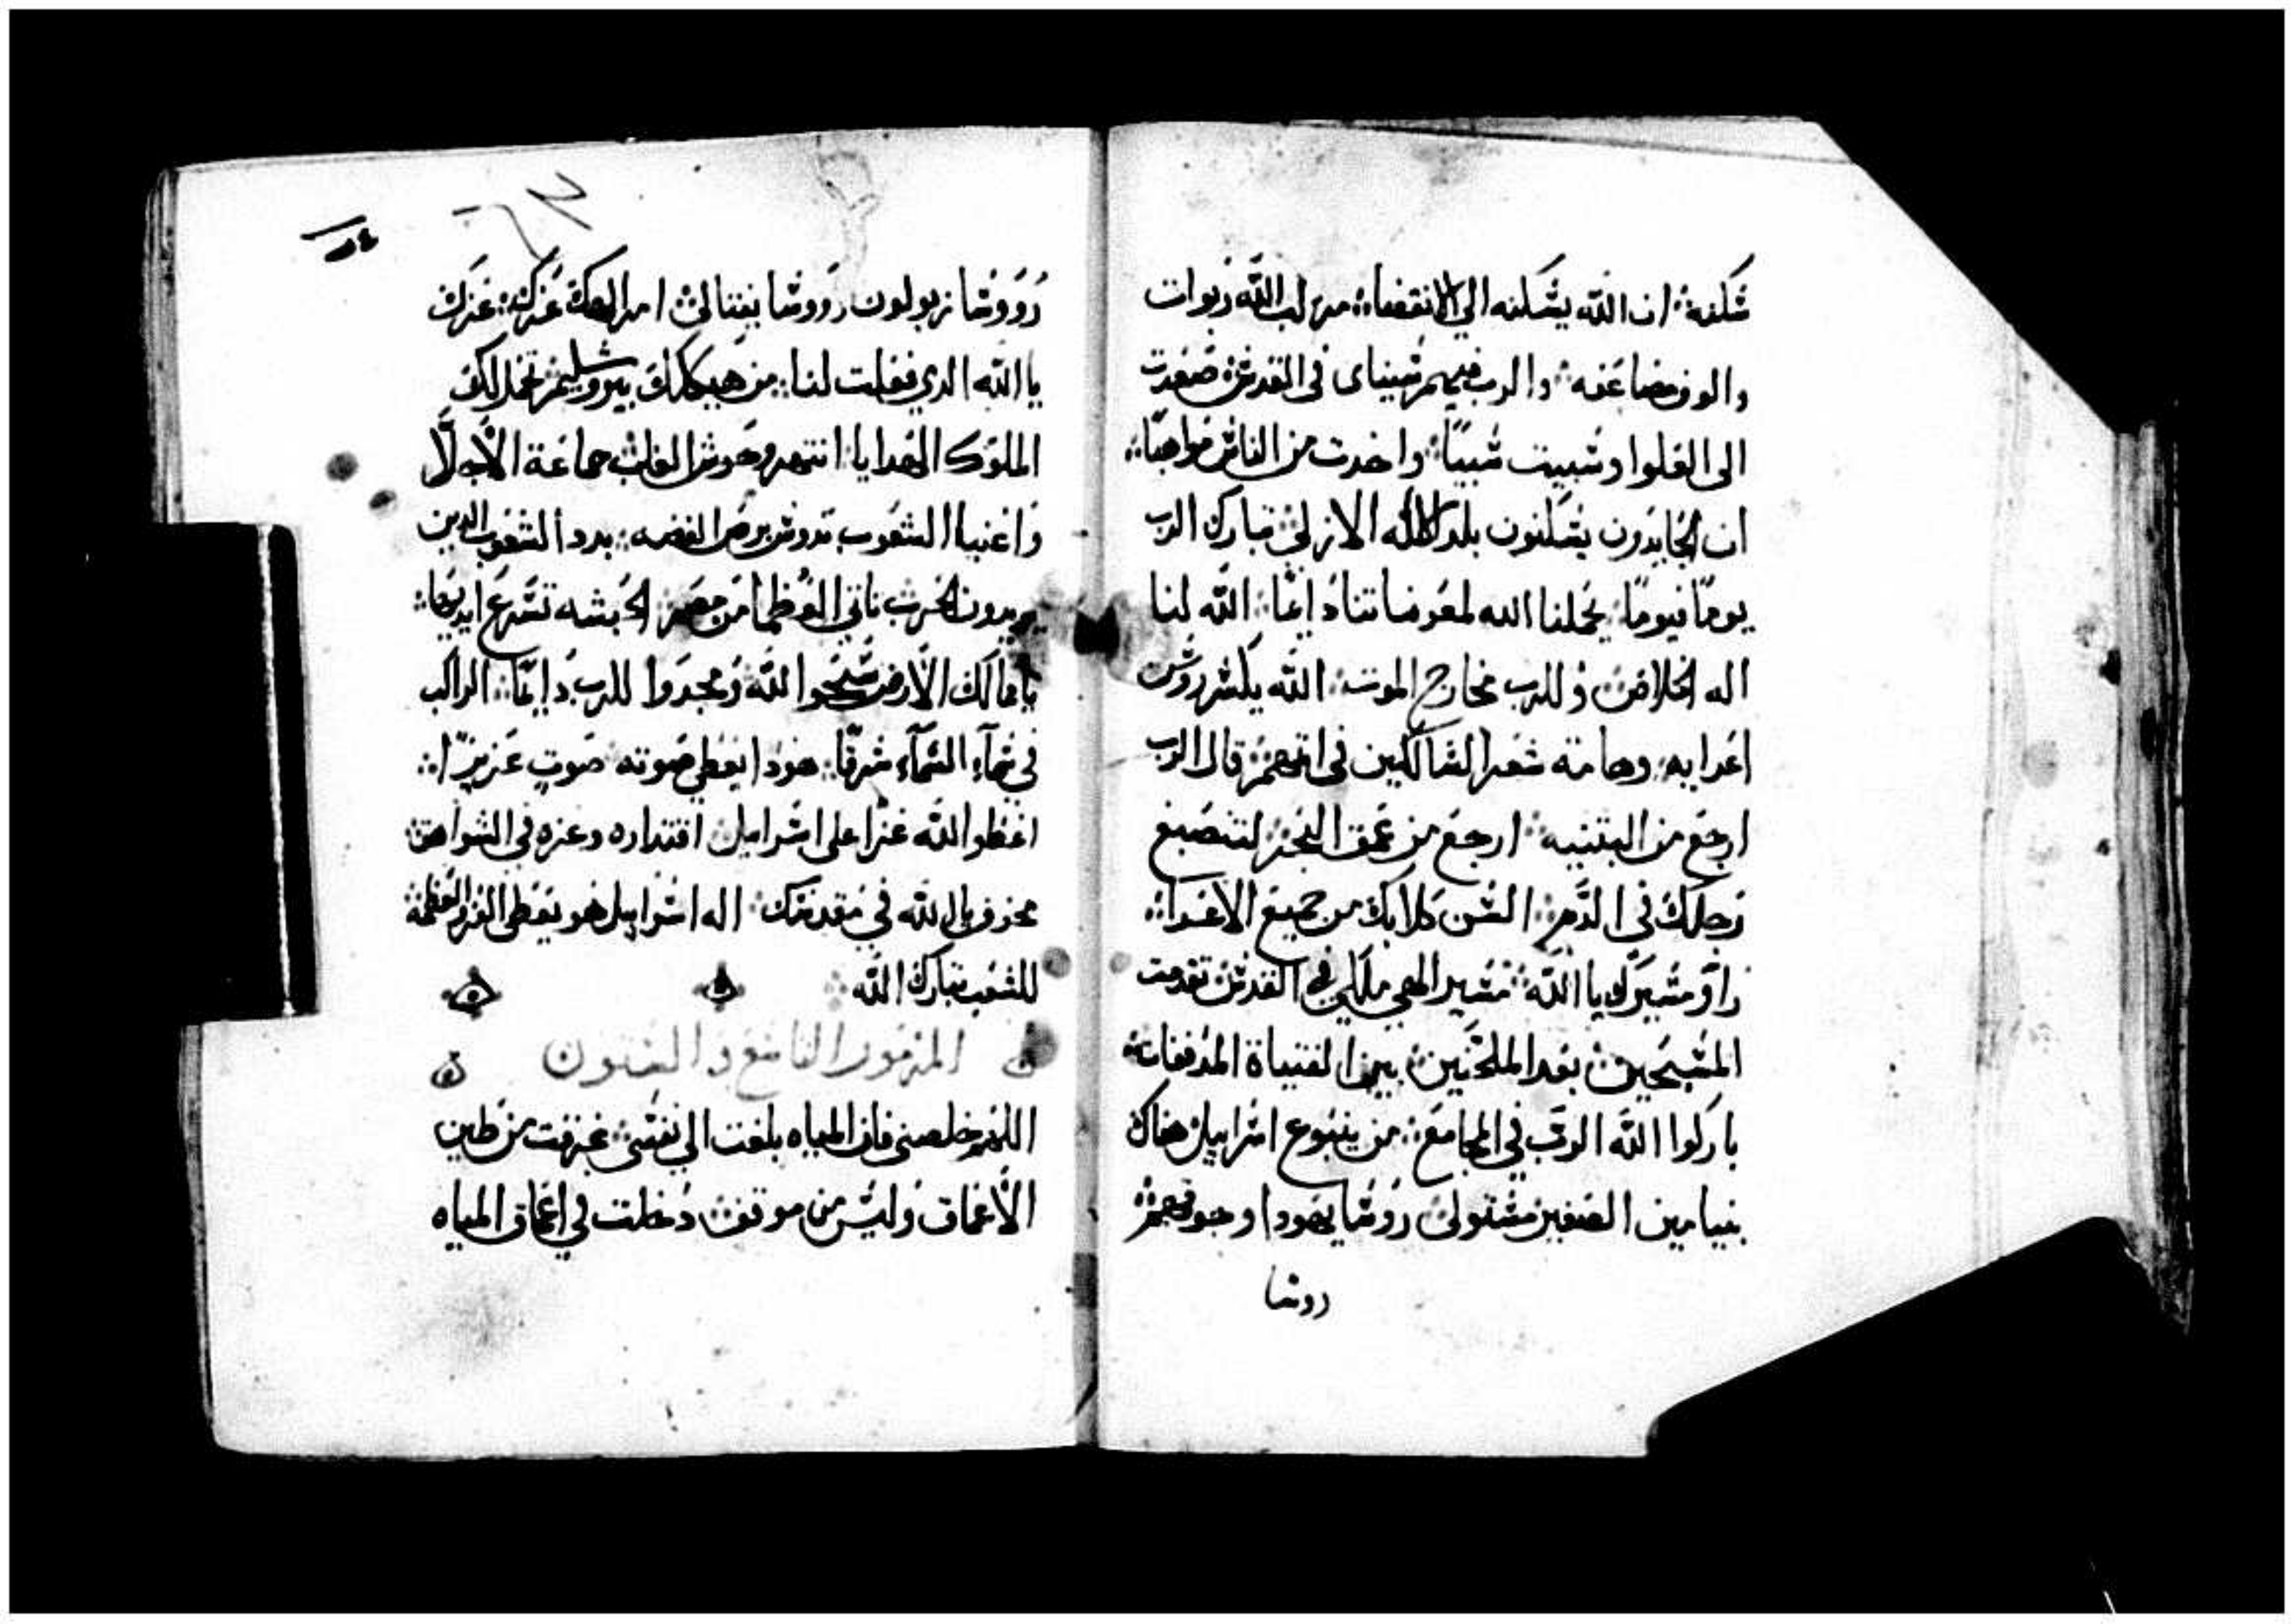 سكنه ان الله يسكنه الي الانقضاء مركب الله ربوات
والوف مضاعفه والرب فيهم سيناى فى القدس صعدت
الى العلوا وسبيت سبيًا واخدت من الناس مواهبًا
ان الجاحدون يسكنون بلد الاله الازلى تبارك الرب
يومًا فيومًا يحملنا الله لمعوضاتنا دايمًا الله لنا
اله الخلاص وللرب مخارج الموت الله يكسر روس
اعدايه وهامة شعر السالكين فى اتمهم قال الرب
ارجع من البتنيه ارجع من عمق البحر لتنصبغ
رجلك فى الدم السن كلابك من جميع الاعداء
راو مسيرك يا الله مسير الهى ملكي في القدس تقدمت
المسبحين بعد الملحنين بين الفتياة المدففات
باركوا الله الرب في المجامع من ينبوع اسراييل هناك
بنيامين الصغير مستولى روسا يهودا وجوههم
روسا
٥٤
روسا زبولون روسا نفتالى امر الهك عزك عزك
يا الله الدي فعلت لنا من هيكلك بيروشليم تحمل لك
الملوك الهدايا انتهر وحوش الغاب جماعة الاجلا
واغنيا الشعوب تدوس برص الفضه بدد الشعوب الدين
يريدون الحرب تاتي العظما من مصر الحبشه تسرع ايديها
يا ممالك الارض سبحوا الله ومجدوا للرب دايمًا الراكب
في سماء السماء شرقًا هودا يعطي صوته صوت عزيزًا
اعطوا الله عزا على اسراييل اقتداره وعزه في الشواهق
مخوف بالله في مقدسك اله اسراييل هو يعطى العز والعظمة
للشعب تبارك الله
المزمور التاسع والستون
اللهم خلصنى فان المياه بلغت الي نفسى غرقت من طين
الاعماق وليس من موقف دخلت في اعماق المياه